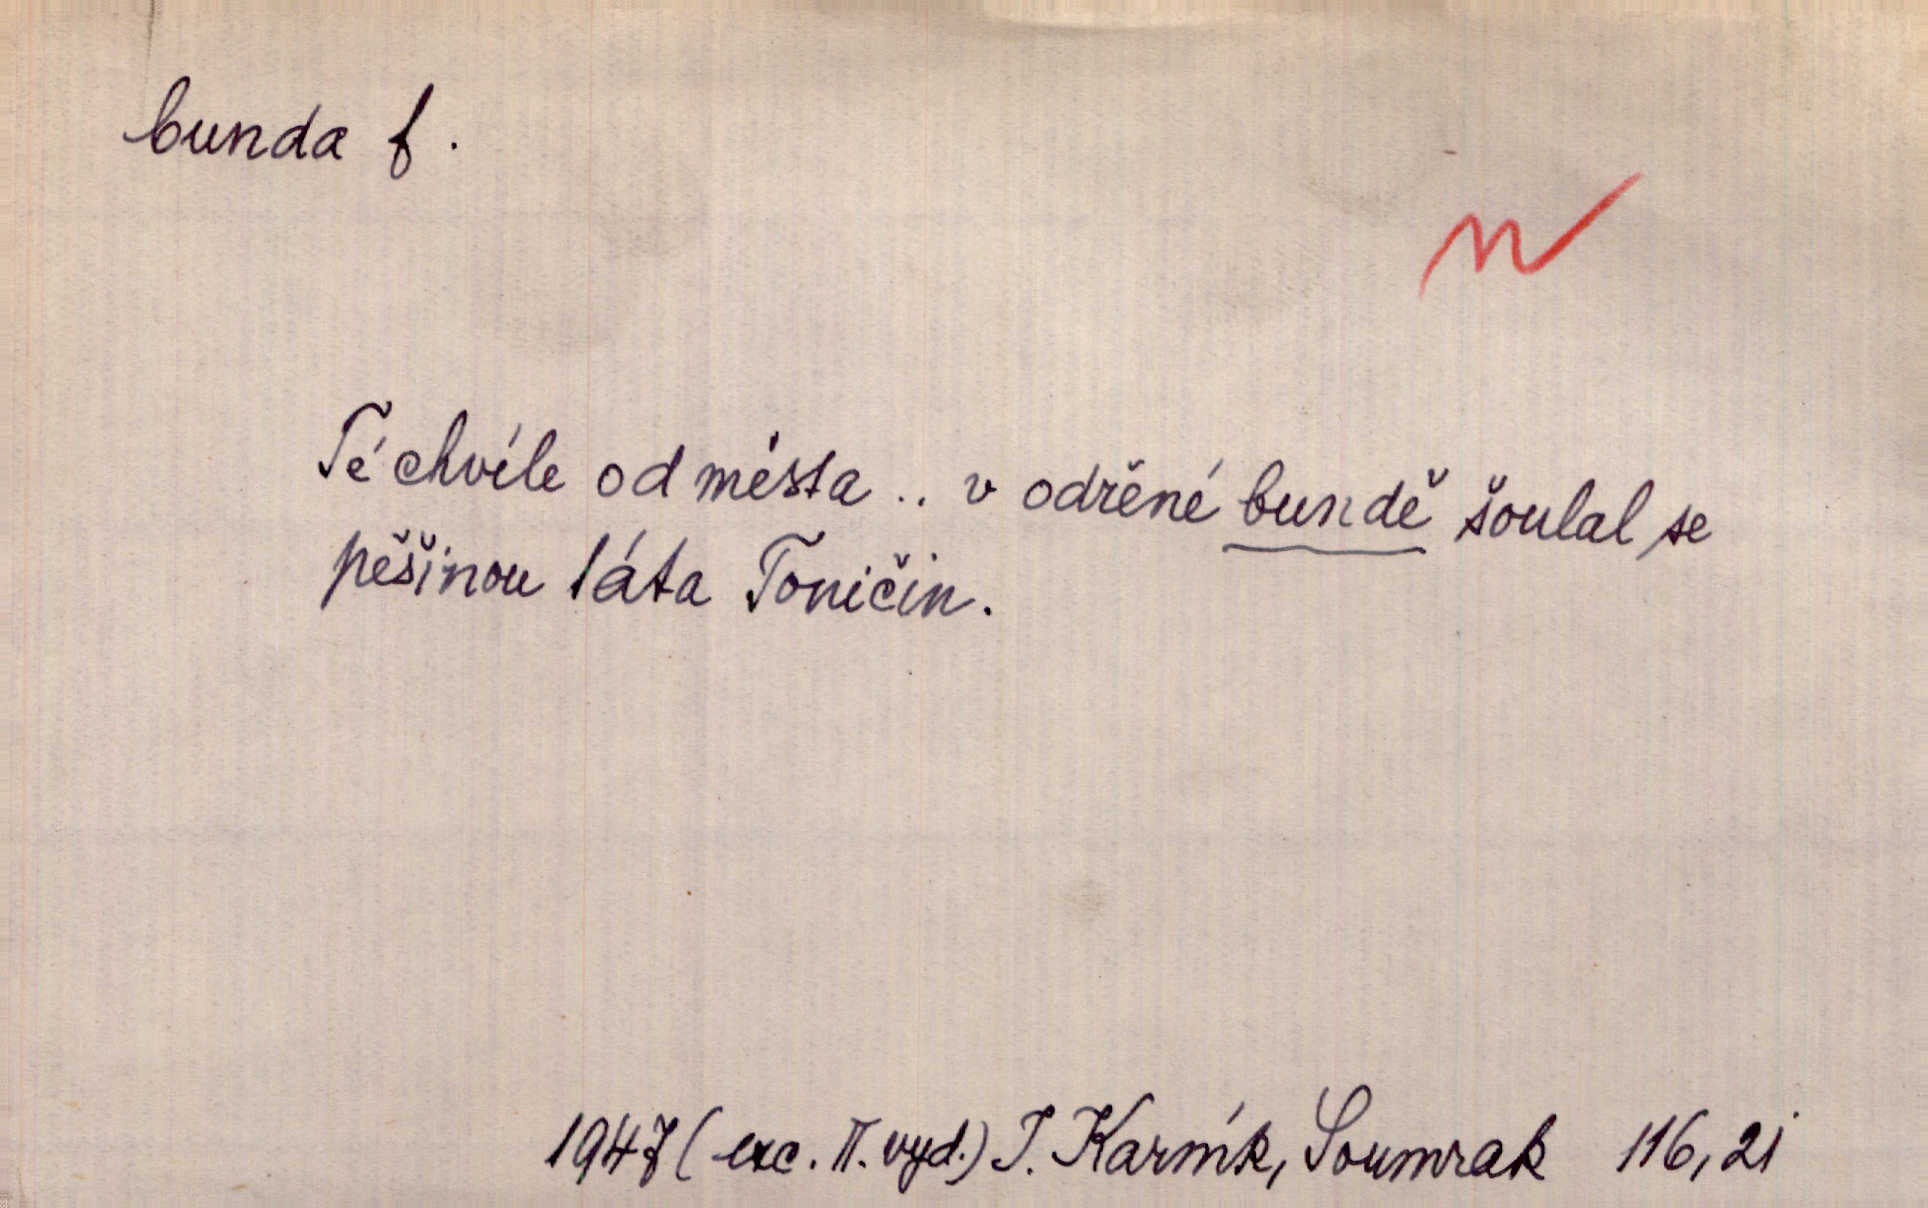 bunda f.
n
Té chvíle od města .. v odřené bundě šoulal se
pěšinou táta Toničin.
1947 (exc. II. vyd.) J. Karník, Soumrak 116, 2i